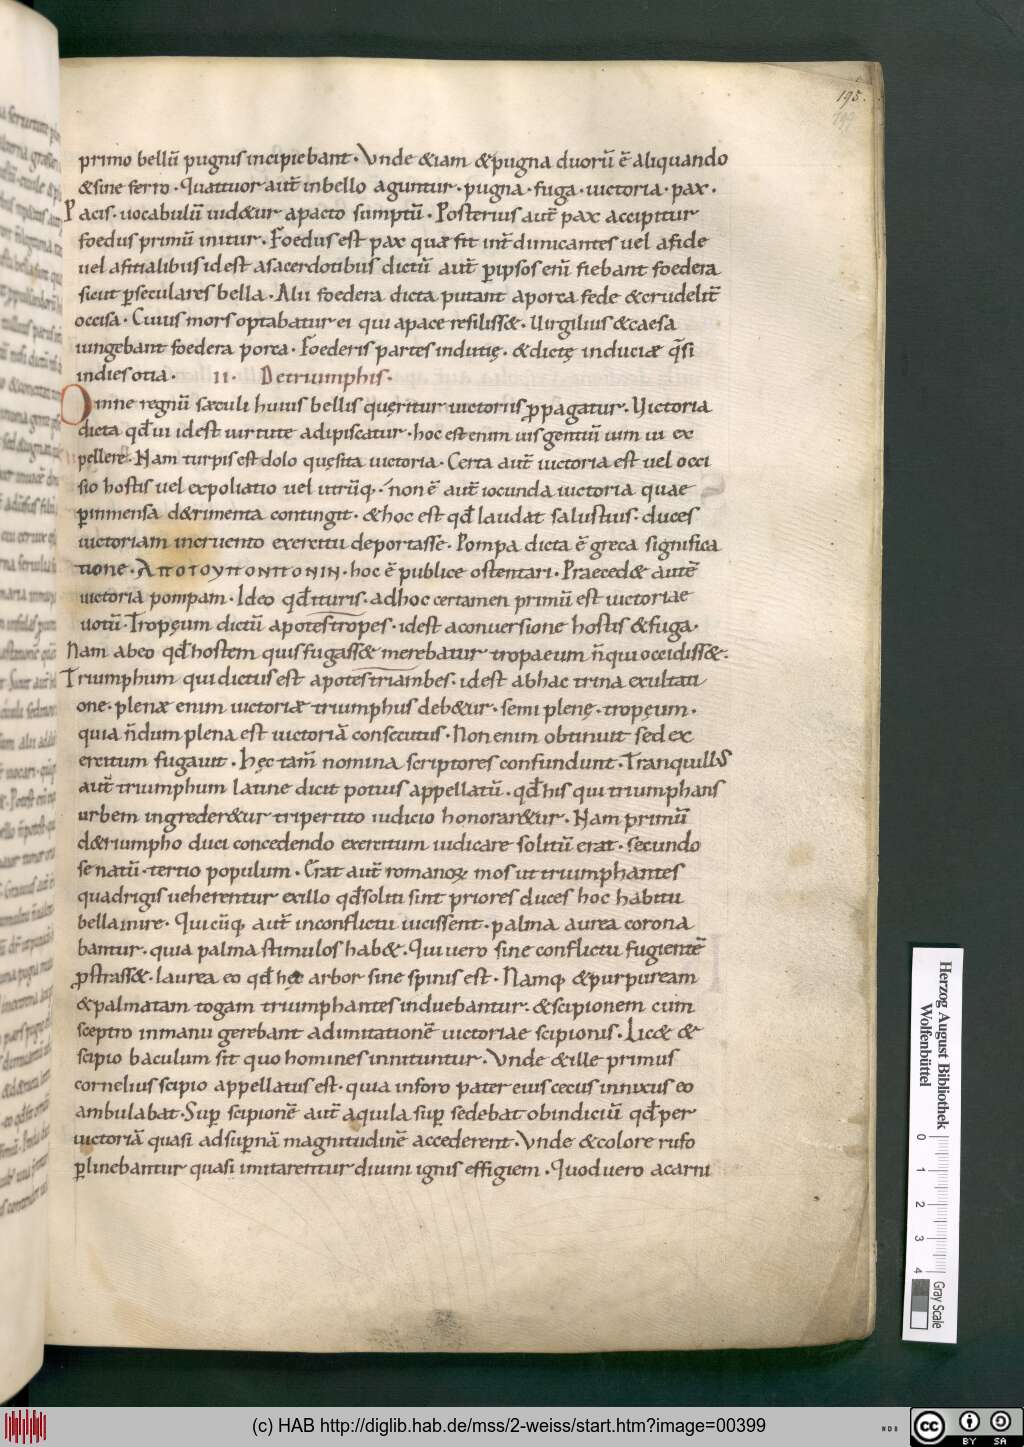 195.
primo bellū pugnis incipiebant. Vnde &iam &pugna duorū ē aliquando
&sine ferro. Quattuor aut̄ inbello aguntur. pugna. fuga. uictoria. pax.
Pacis. uocabulū uid&ur apacto sumptū. Posterius aut̄ pax accipitur
foedus primū initur. Foedus est pax quae fit int̄ dimicantes uel afide
uel afitialibus idest asacerdotibus dictū aut̄ p̱ipsos enī fiebant foedera
sicut p̱seculares bella. Alii foedera dicta putant aporca fede &crudelit̄
occisa. Cuius mors optabatur ei qui apace resiliss&. Uirgilius &caesa
iungebant foedera porca. Foederis partes indutię. &dictę induciæ q̄si
indies otia. II. Detriumphis.
Omne regnū sæculi huius bellis quęritur uictoriis p̱pagatur. Victoria
dicta qđ ui idest uirtute adipiscatur. hoc est enim uis gentiū uim ui ex
pellere. Nam turpis est dolo quęsita uictoria. Certa aut̄ uictoria est uel occi
sio hostis uel expoliatio uel utrūq. non ē aut̄ iocunda uictoria quae
p̱inmensa d&rimenta contingit. &hoc est qđ laudat salustius. duces
uictoriam incruento exercitu deportasse. Pompa dicta ē greca significa
tione. ΑΠΟΤΟΥΠΟΝΠΟΝΙΝ. hoc ē publice ostentari. Praeced& autē
uictoria pompam. Ideo qđ ituris. adhoc certamen primū est uictoriae
uotū. Tropęum dictū apotestropes. idest aconuersione hostis &fuga.
Nam abeo qđ hostem quis fugass& merebatur tropaeum n̄ qui occidiss&.
Triumphum qui dictus est apotestriambes. idest abhac trina exultati
one. plenæ enim uictoriæ triumphus deb&ur. semi plenę. tropęum.
quia n̄dum plena est uictoriā consecutus. Non enim obtinuit sed ex
ercitum fugauit. Hęc tam̄ nomina scriptores confundunt. Tranquillus
aut̄ triumphum latine dicit potius appellatū. qđ his qui triumphans
urbem ingreder&ur tripertito iudicio honorar&ur. Nam primū
d&riumpho duci concedendo exercitum iudicare solitū erat. secundo
senatū. tertio populum. Erat aut̄ romanoꝝ mos ut triumphantes
quadrigis ueherentur exillo qđ soliti sint priores duces hoc habitu
bella inire. Quicūq aut̄ inconflictu uicissent. palma aurea corona
bantur. quia palma stimulos hab&. Qui uero sine conflictu fugientē
p̱strass&. laurea eo qđ hęc arbor sine spinis est. Namq &purpuream
&palmatam togam triumphantes induebantur. &scipionem cum
sceptro inmanu gerebant adimitationē uictoriae scipionis. Lic& &
scipio baculum sit quo homines innituntur. Vnde &ille primus
cornelius scipio appellatus est. quia inforo pater eius cecus innixus eo
ambulabat. Sup̱ scipionē aut̄ aquila sup̱ sedebat obindiciū qđ per
uictoriā quasi adsup̱nā magnitudinē accederent. Vnde &colore rufo
p̱linebantur quasi imitarentur diuini ignis effigiem. Quoduero acarni
Herzog August Bibliothek
Wolfenbüttel
0 1 2 3 4
Gray Scale
(c) HAB http://diglib.hab.de/mss/2-weiss/start.htm?image=00399
cc BY SA